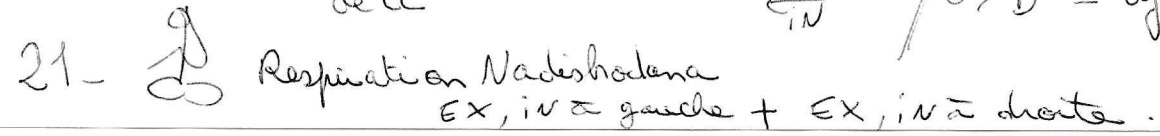 iN
21- Respiration Nadishodana
EX, iN à gauche + EX, iN à droite.